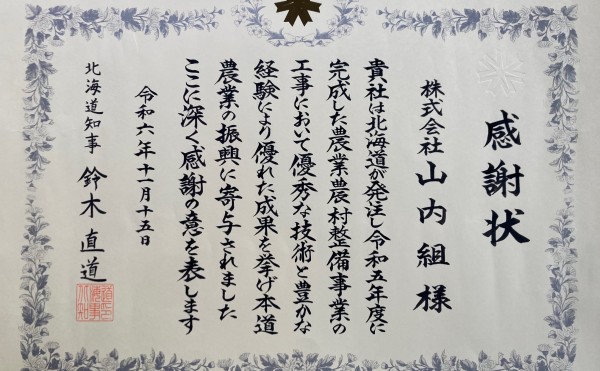 感謝状
株式会社 山内組 様
貴社は北海道が発注し令和五年度に
完成した農業農村整備事業の
工事において優秀な技術と豊かな
経験により優れた成果を挙げ本道
農業の振興に寄与されました
ここに深く感謝の意を表します
令和六年十一月十五日
北海道知事 鈴木直道